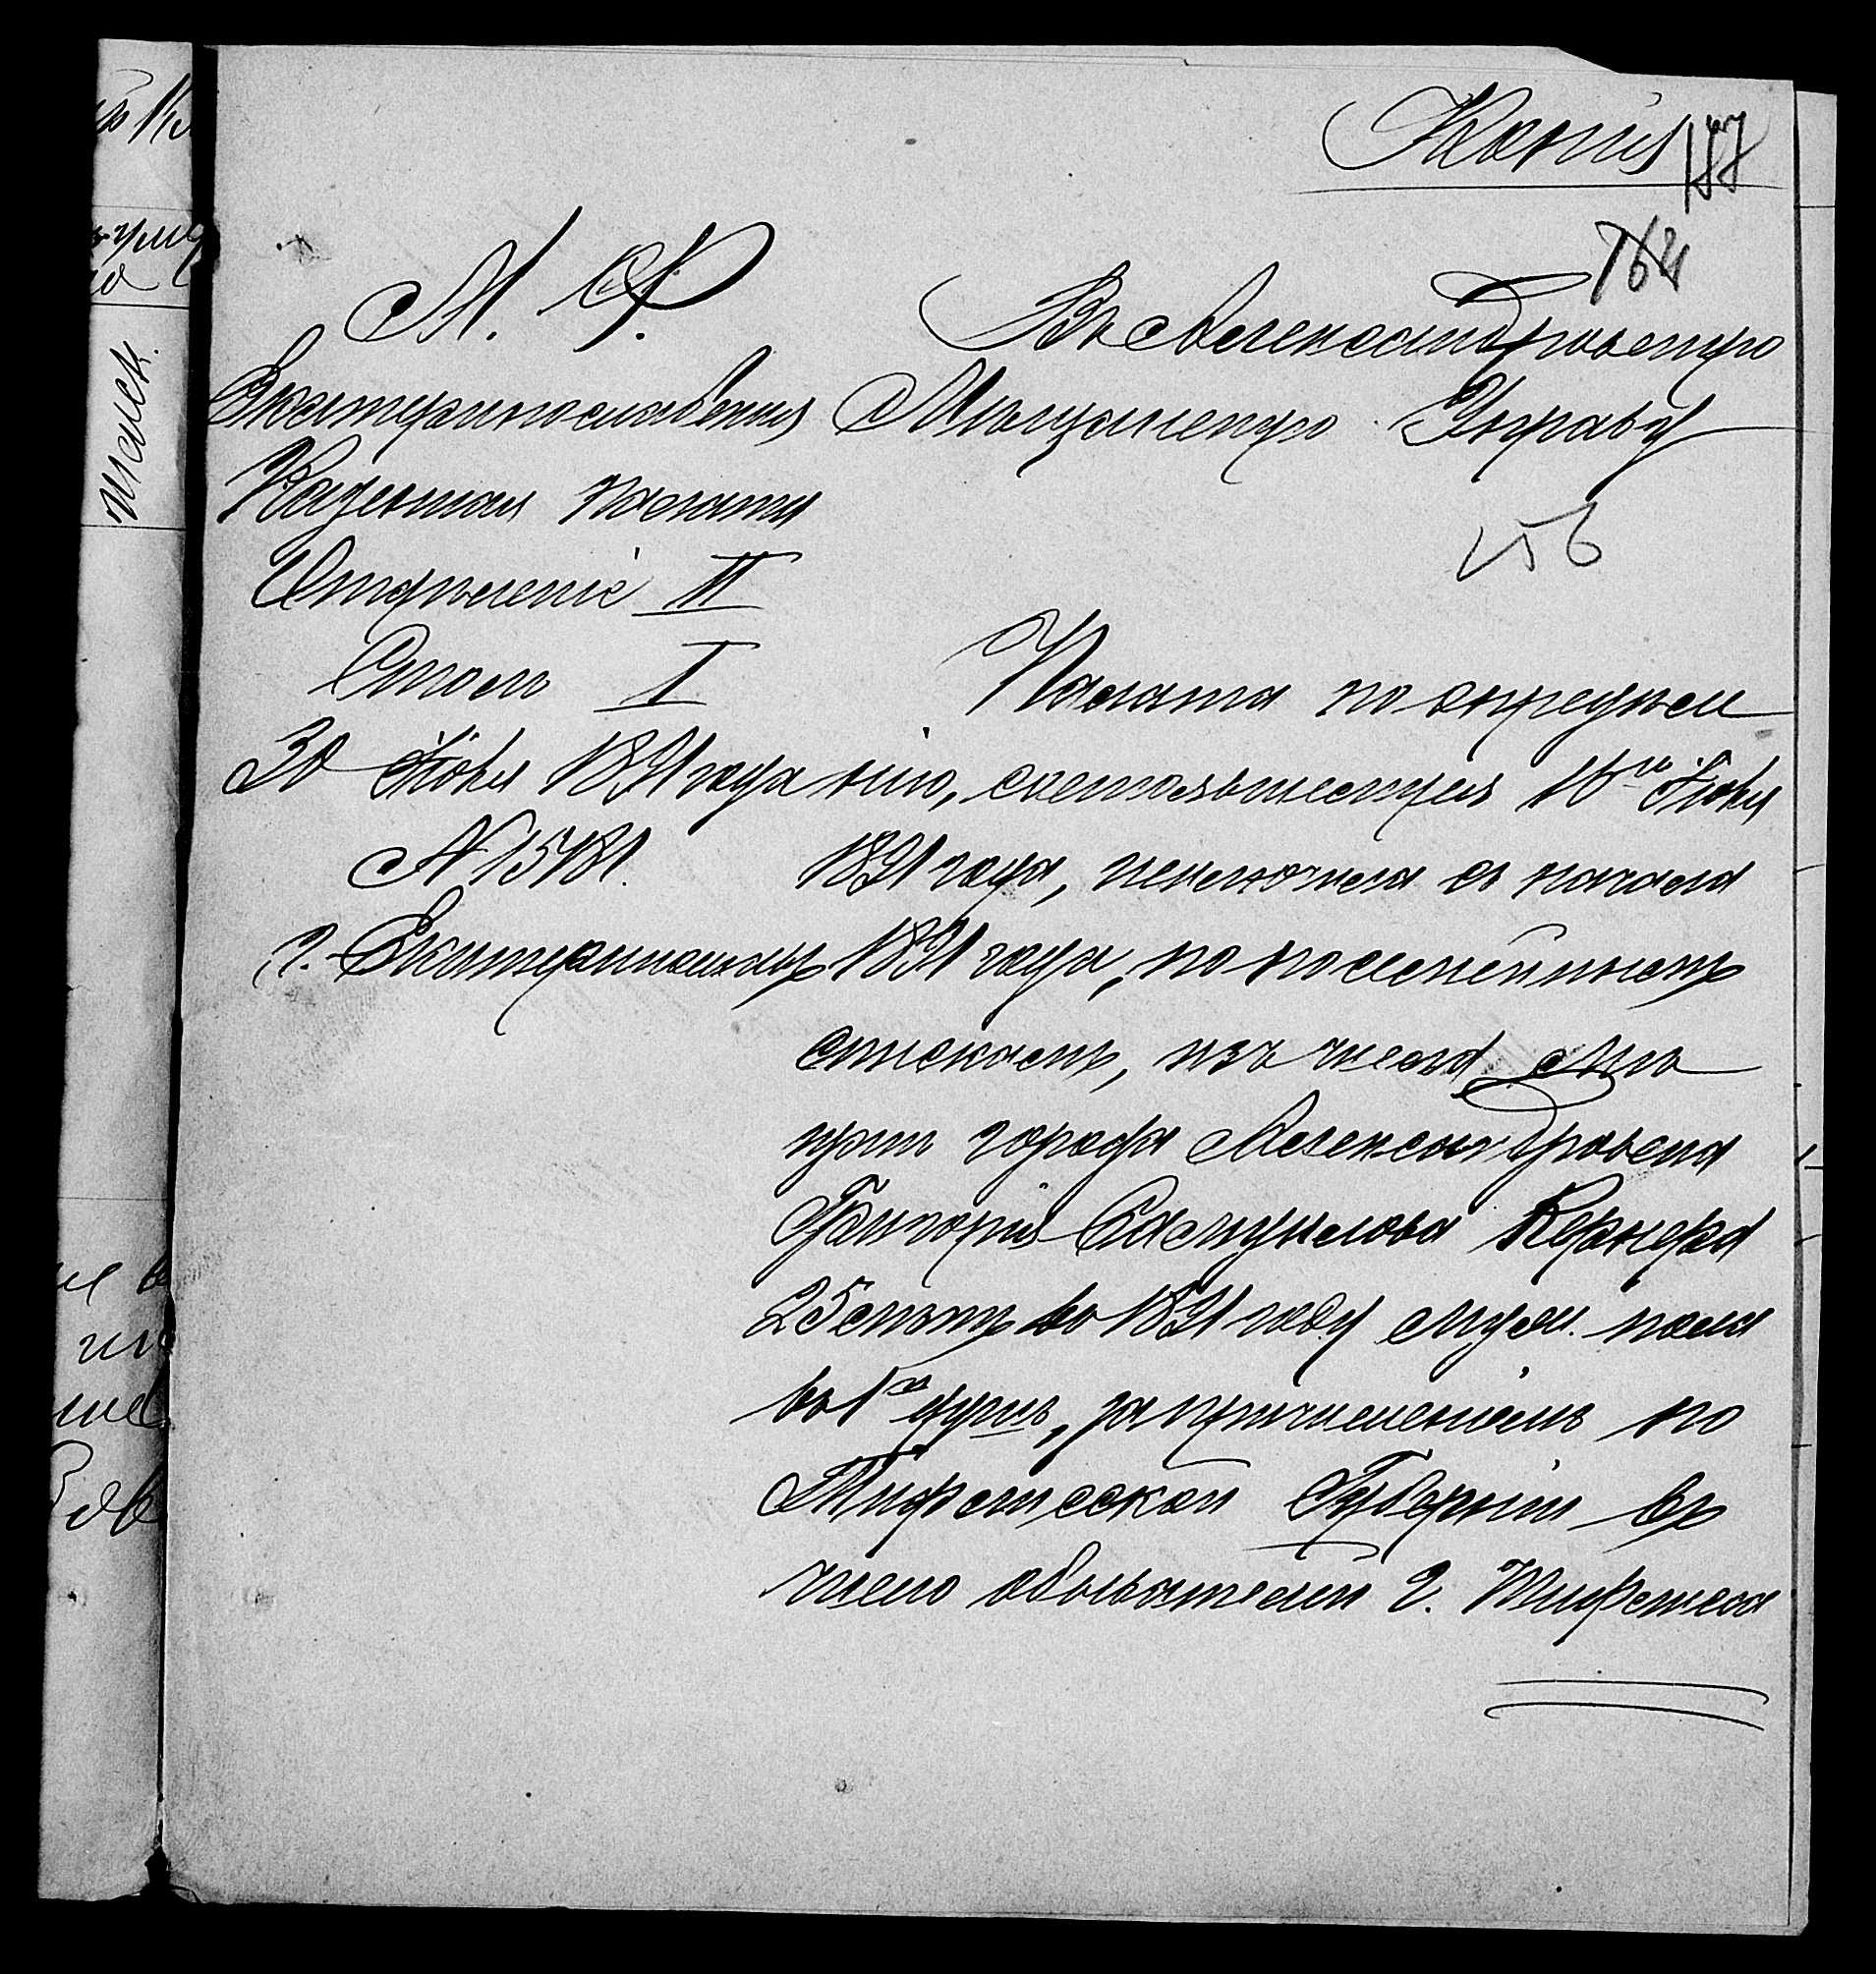 Копія
157
164
М. Ф.
Екатеринославская
Казенная палата
Отдѣленіе II
Столъ I
30 Іюня 1891 года
№ 15181.
г. Екатеринославъ
Въ Александровскую
Мѣщанскую Управу
156
Палата по опредѣле
нію, состоявшемуся 16го Іюня
1891 года, исключила съ начала
1891 года, по посемейнымъ
спискамъ, изъ числа мѣ
щанъ города Александровска
Григорія Самуилова Кернера
25 лѣтъ въ 1891 году муж. пола
въ 1й душѣ, за причисленіемъ по
Тифлисской Губерніи въ
число обывателей г. Тифлиса